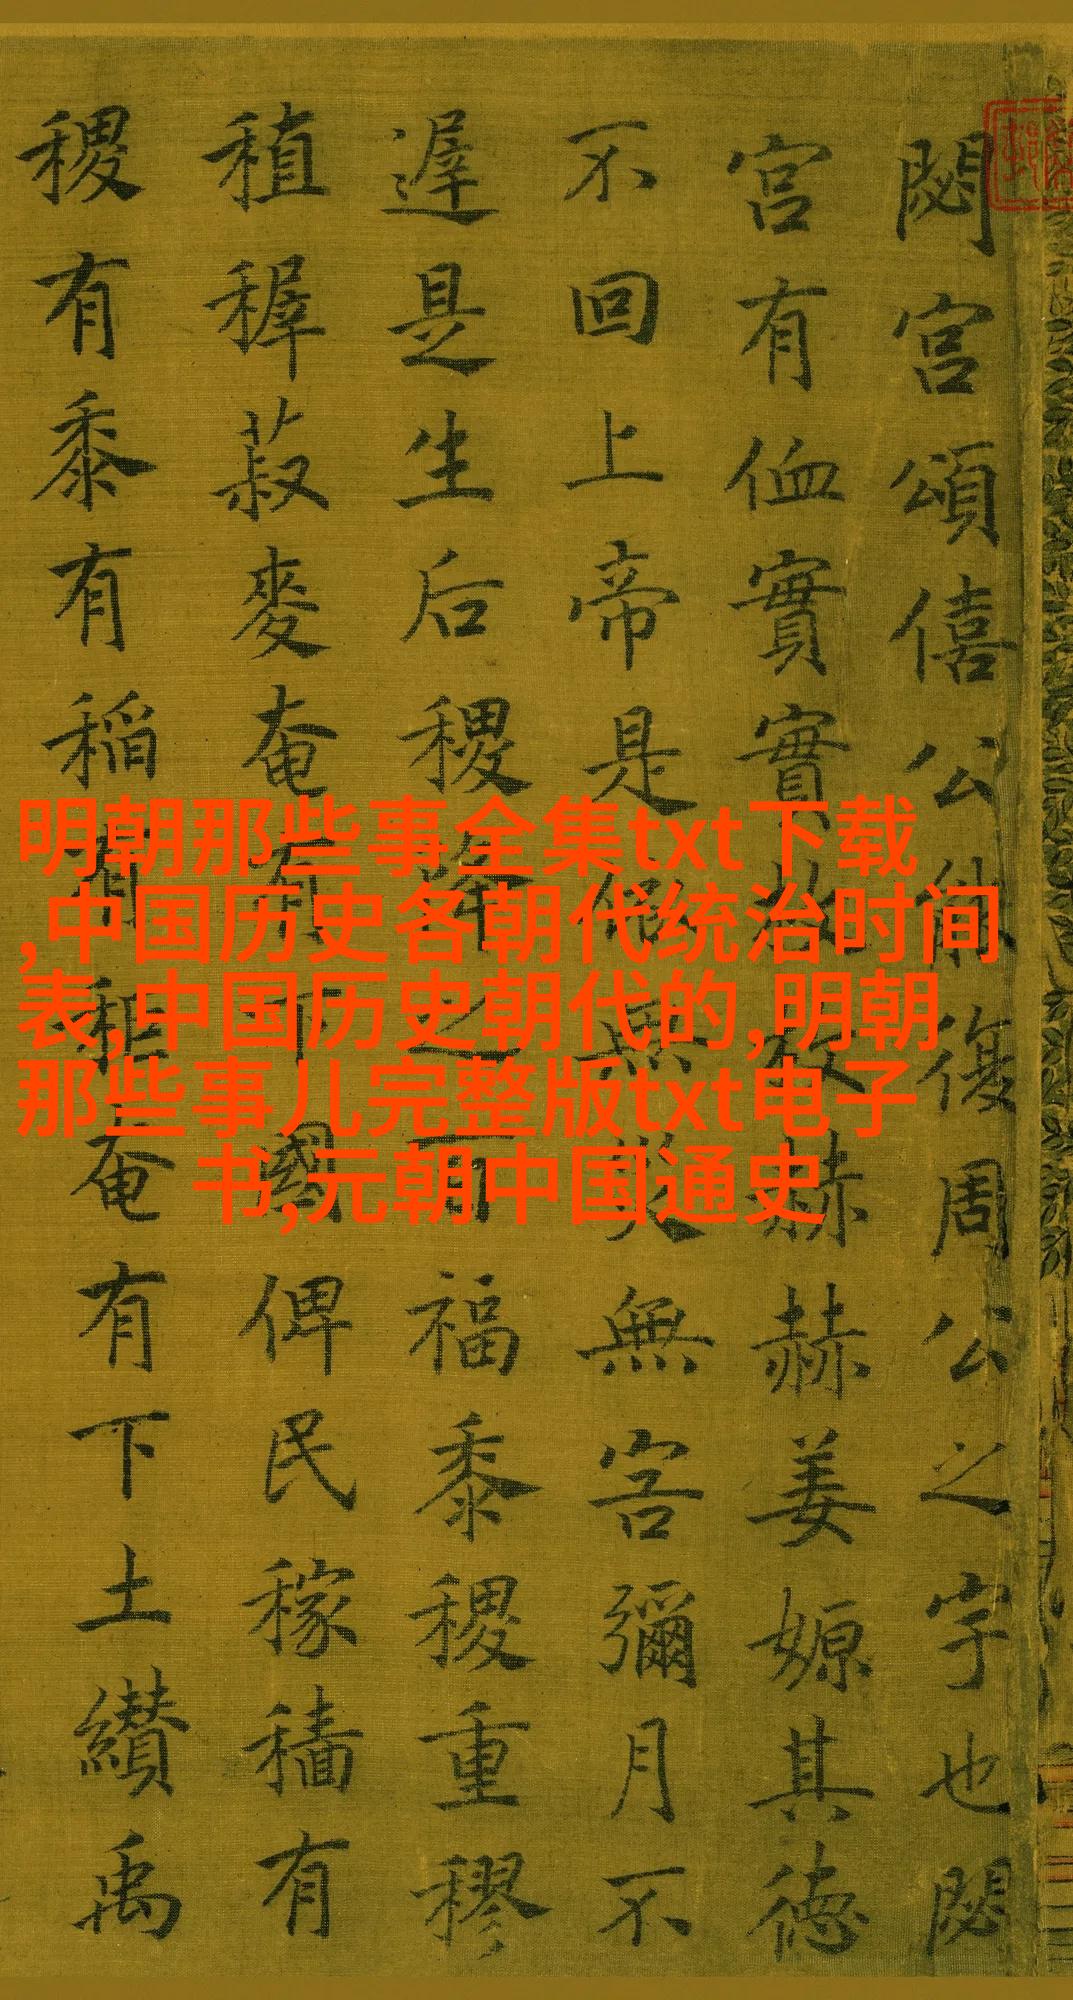 閟宮頌僖公能復周公之宇也閟
宮有侐實實枚枚赫赫姜嫄其德
不回上帝是依無災無害彌月不
遲是生后稷降之百福黍稷重穋
稙稺菽麥奄有下國俾民稼穡有
稷有黍有稻有秬奄有下土纘禹
明朝那些事全集txt下载
,中国历史各朝代统治时间
表,中国历史朝代的,明朝
那些事儿完整版txt电子
书,元朝中国通史